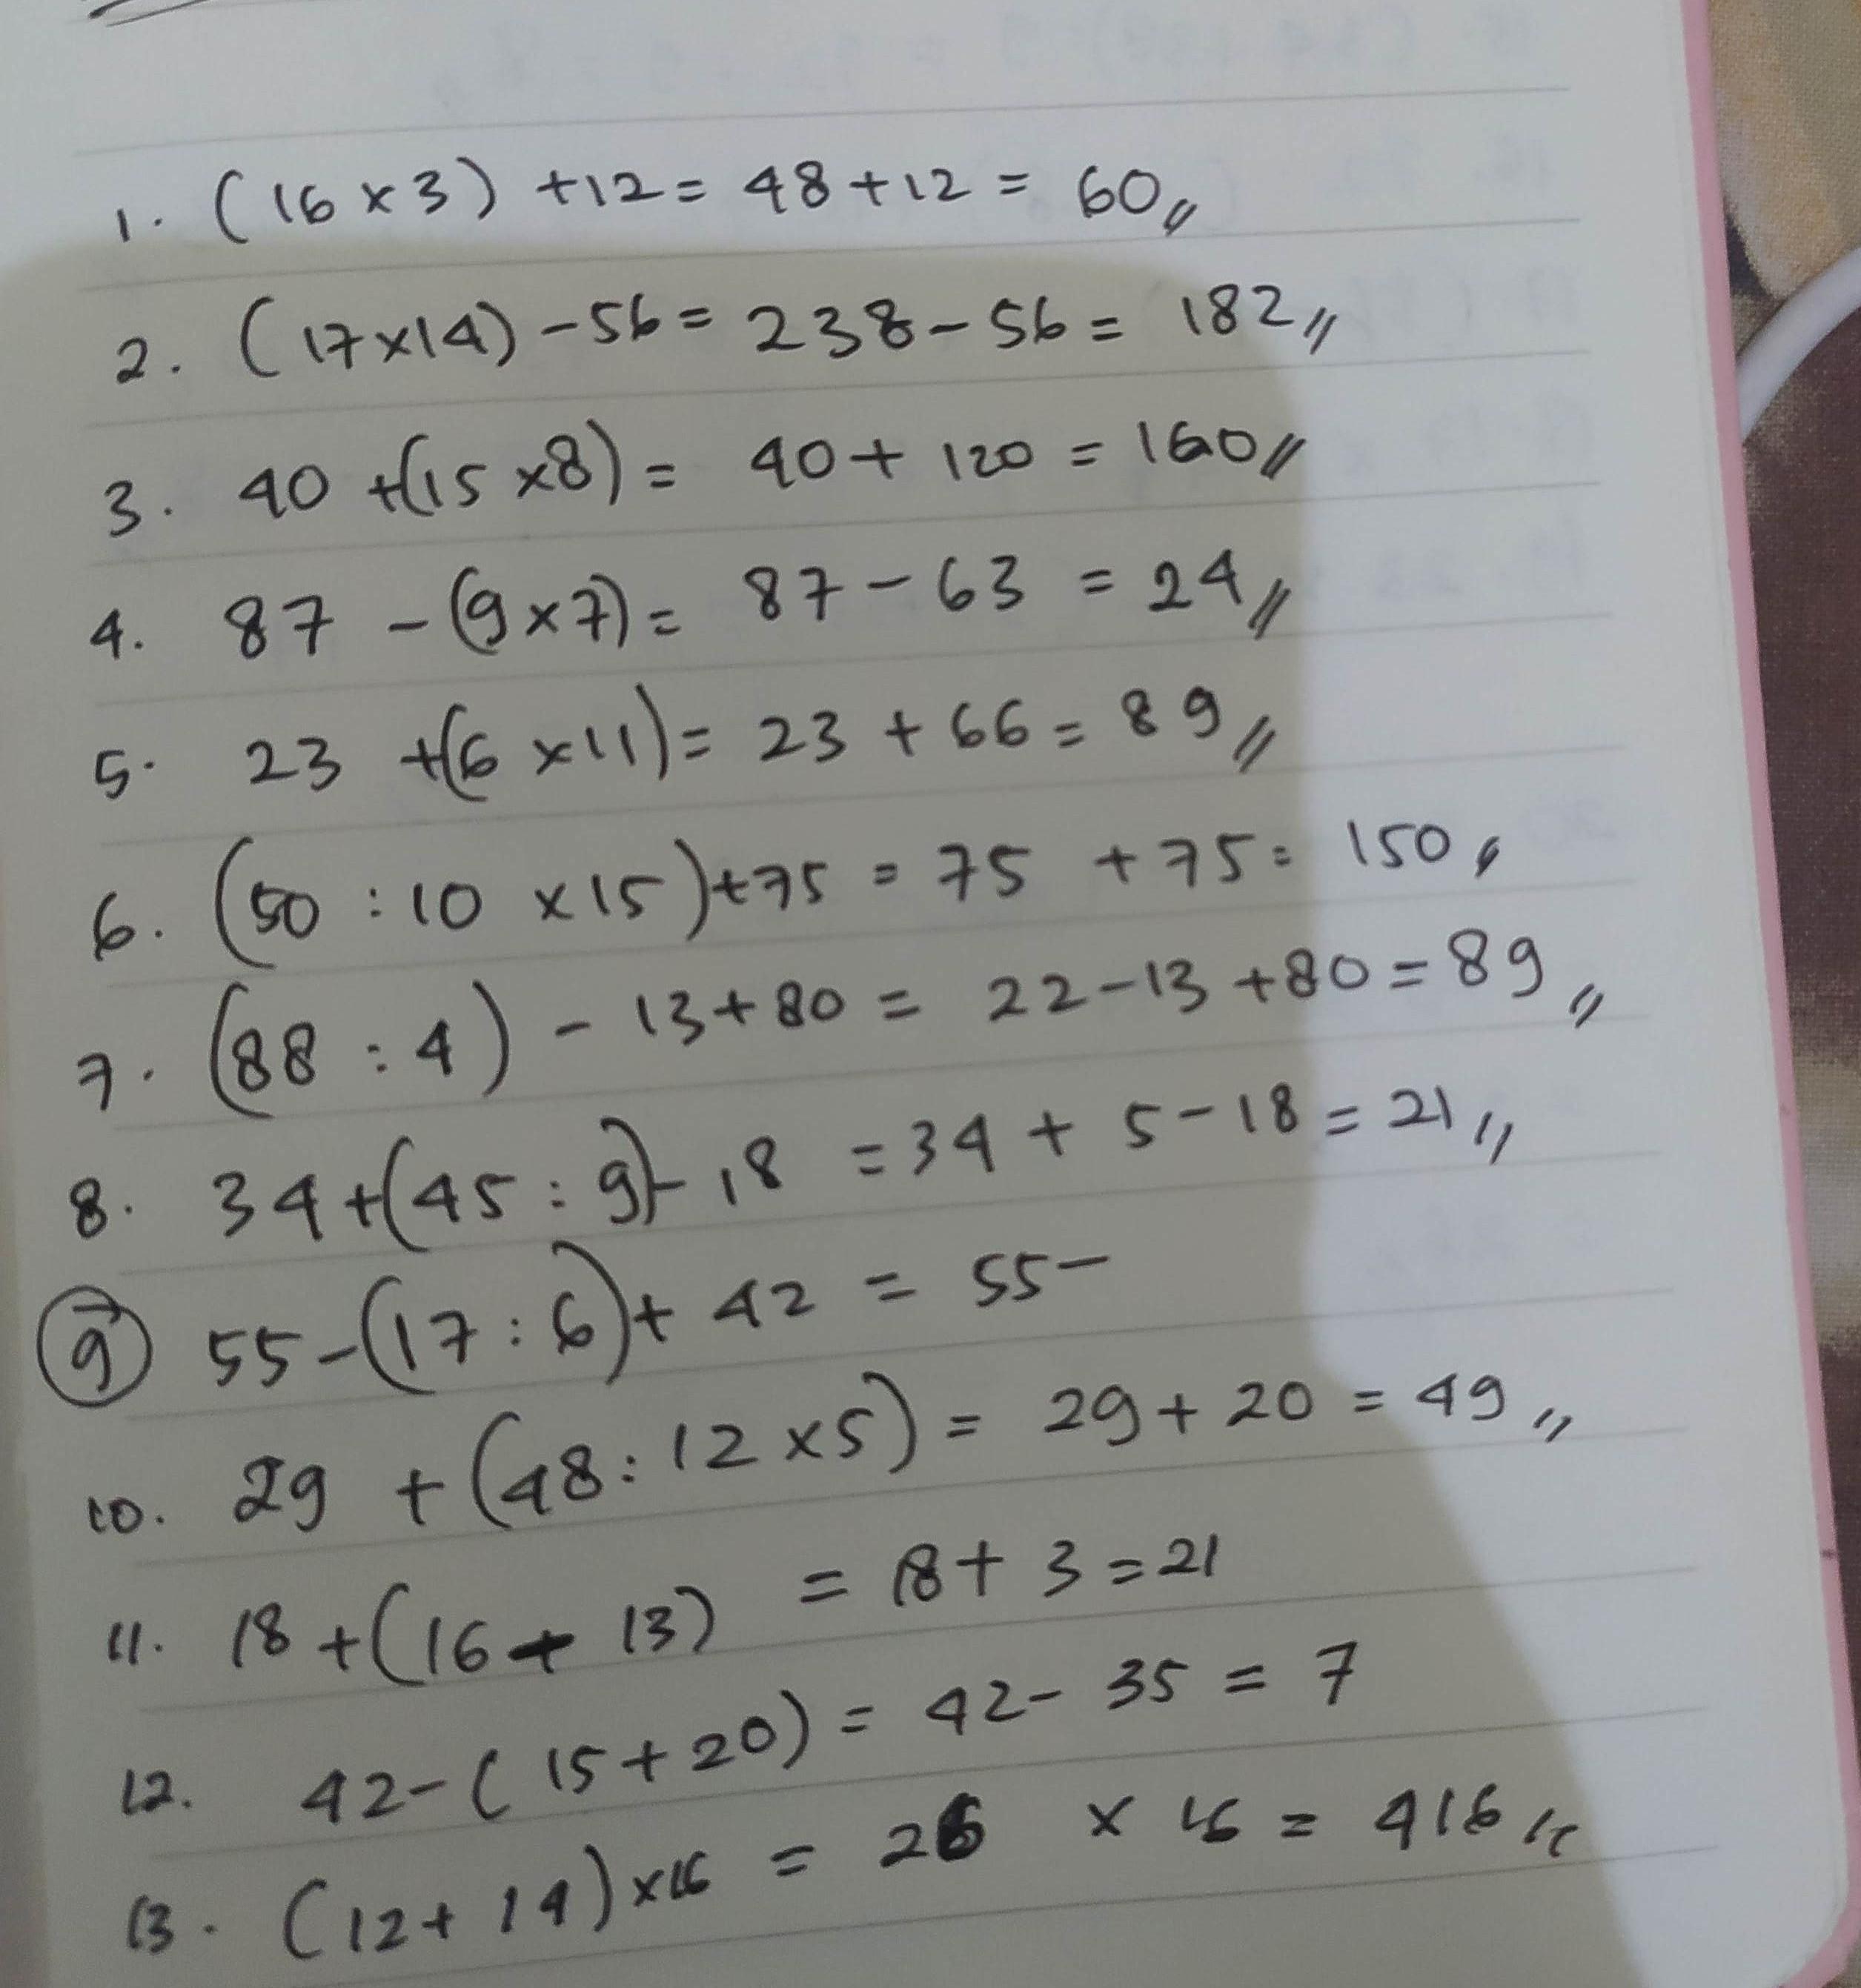 1. (16 x 3) + 12 = 48 + 12 = 60 //
2. (17 x 14) - 56 = 238 - 56 = 182 //
3. 40 + (15 x 8) = 40 + 120 = 160 //
4. 87 - (9 x 7) = 87 - 63 = 24 //
5. 23 + (6 x 11) = 23 + 66 = 89 //
6. (50 : 10 x 15) + 75 = 75 + 75 = 150 //
7. (88 : 4) - 13 + 80 = 22 - 13 + 80 = 89 //
8. 34 + (45 : 9) - 18 = 34 + 5 - 18 = 21 //
9 55 - (17 : 6) + 42 = 55 -
10. 29 + (48 : 12 x 5) = 29 + 20 = 49 //
11. 18 + (16 + 13) = 18 + 3 = 21
12. 42 - (15 + 20) = 42 - 35 = 7
13. (12 + 14) x 16 = 26 x 16 = 416 //